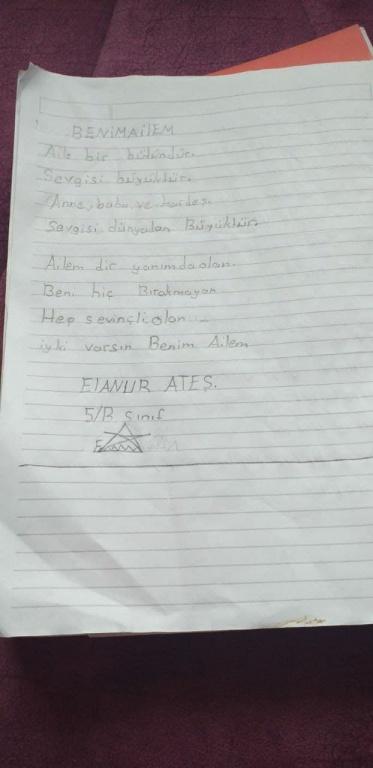 BENİMAİlEM
Aile bir bütündür.
Sevgisi büyüktür.
Anne, baba ve kardeş.
Sevgisi dünyaları Büyüktür.
Ailem dir yanımda olan.
Beni hiç Bırakmayan
Hep sevinçli olan
iyki varsın Benim Ailem
ElANUR ATEŞ.
5/B sınıf